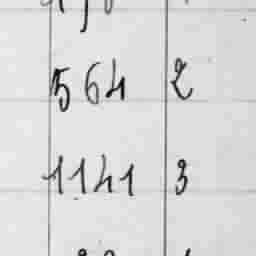 564 2
1141 3